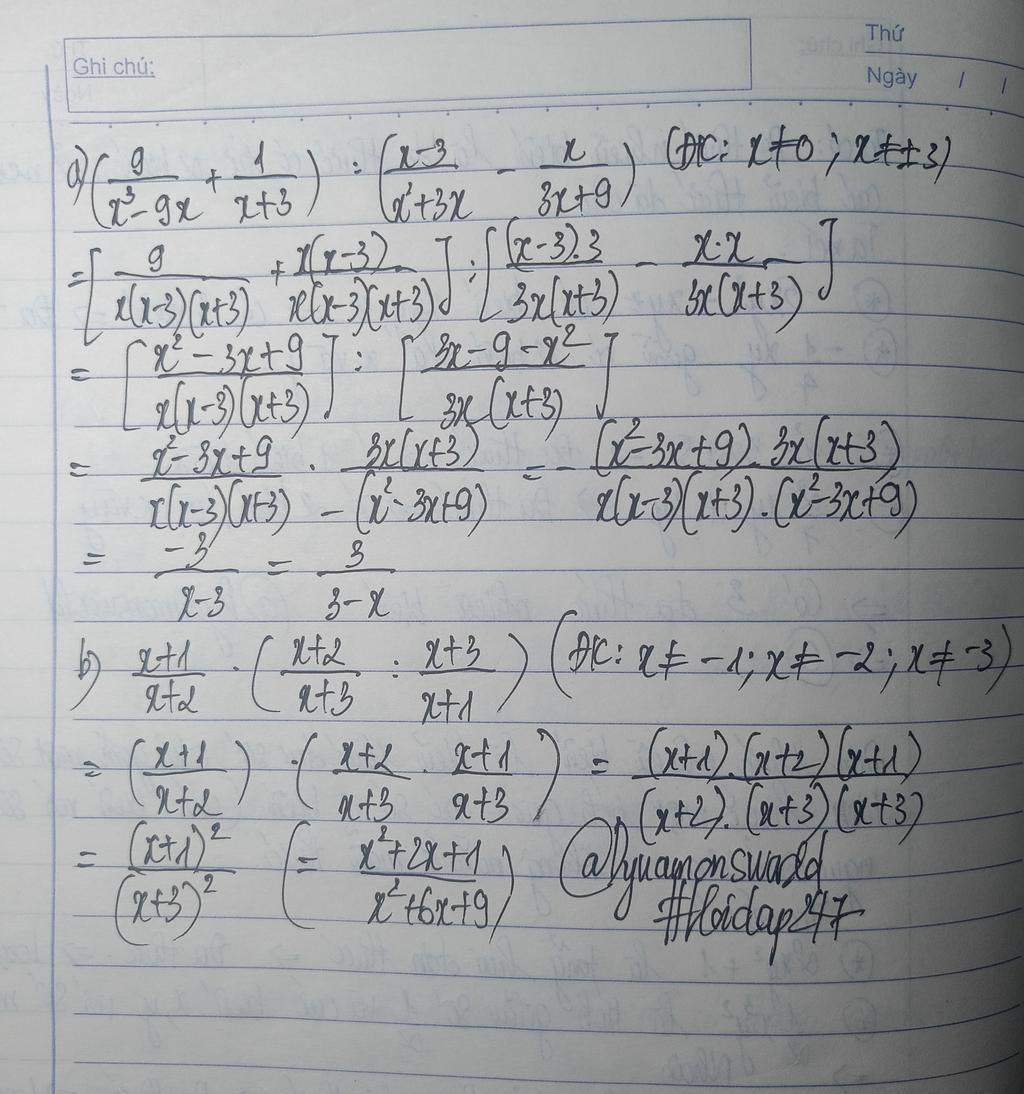 Ghi chú:
Thứ
Ngày / /
a) (9/(x³-9x) + 1/(x+3)) : ((x-3)/(x²+3x) - x/(3x+9)) (ĐK: x≠0 ; x≠±3)
= [9/(x(x-3)(x+3)) + x(x-3)/(x(x-3)(x+3))] : [(x-3).3/(3x(x+3)) - x.x/(3x(x+3))]
= [(x²-3x+9)/(x(x-3)(x+3))] : [(3x-9-x²)/(3x(x+3))]
= (x²-3x+9)/(x(x-3)(x+3)) . 3x(x+3)/(-(x²-3x+9)) = - (x²-3x+9).3x(x+3)/(x(x-3)(x+3).(x²-3x+9))
= -3/(x-3) = 3/(3-x)
b) (x+1)/(x+2) . ((x+2)/(x+3) : (x+3)/(x+1)) (ĐK: x≠-1; x≠-2; x≠-3)
= ((x+1)/(x+2)) . ((x+2)/(x+3) . (x+1)/(x+3)) = (x+1).(x+2)(x+1)/((x+2).(x+3)(x+3))
= (x+1)²/(x+3)² (= (x²+2x+1)/(x²+6x+9))
#Hoidap247